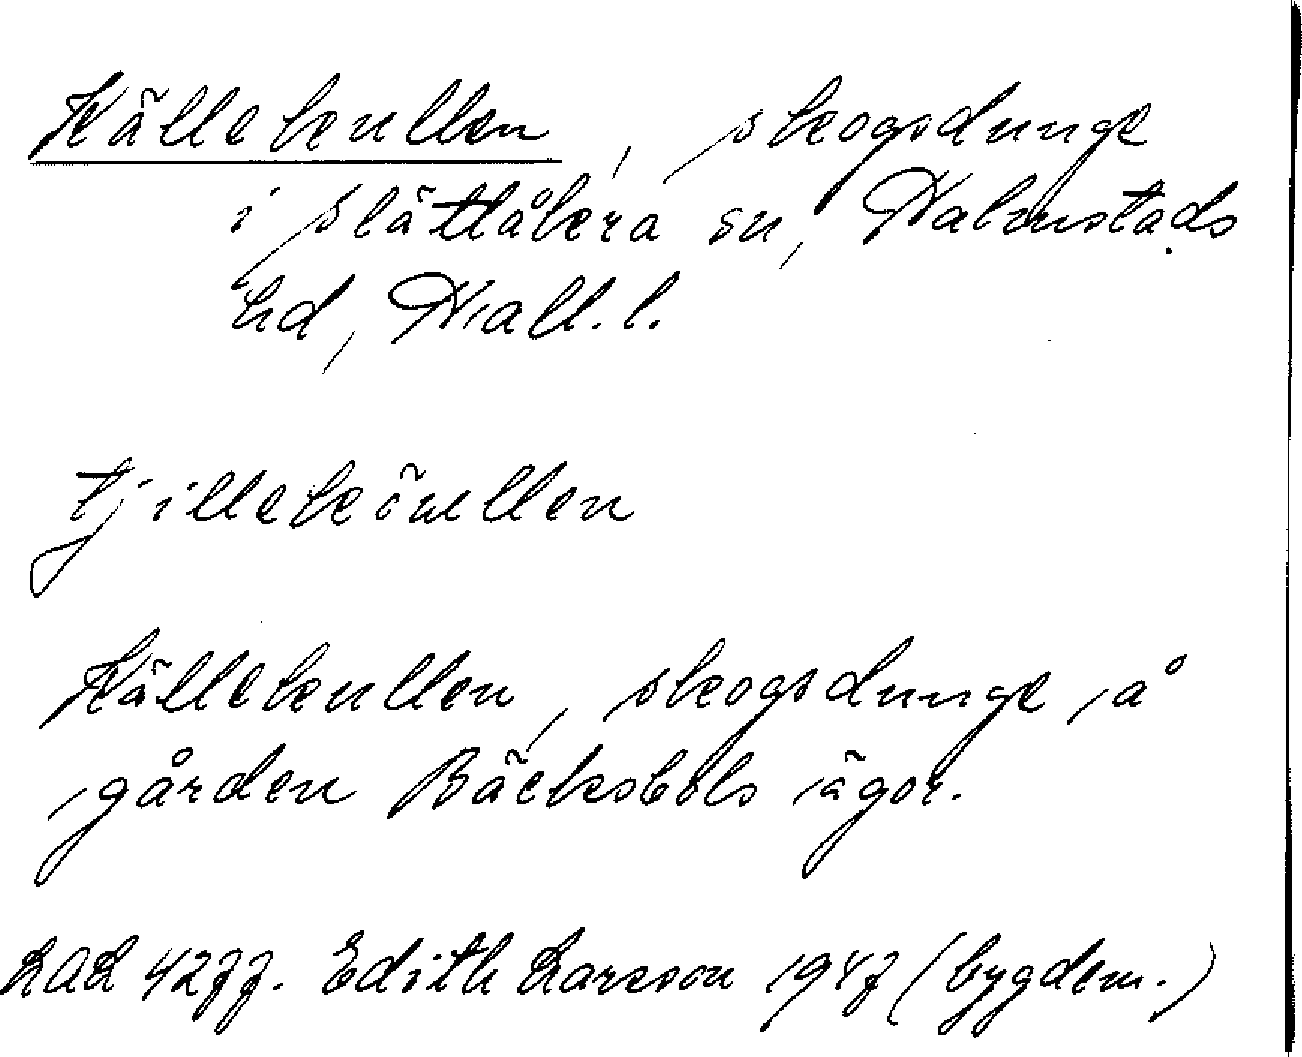 Källekullen, skogsdunge
i Slättåkra sn, Halmstads
hd, Hall. l.
tjilleköullen
Källekullen, skogsdunge å
gården Bäcksbols ägor.
LAL 4277. Edith Larsson 1947 (bygdem.)